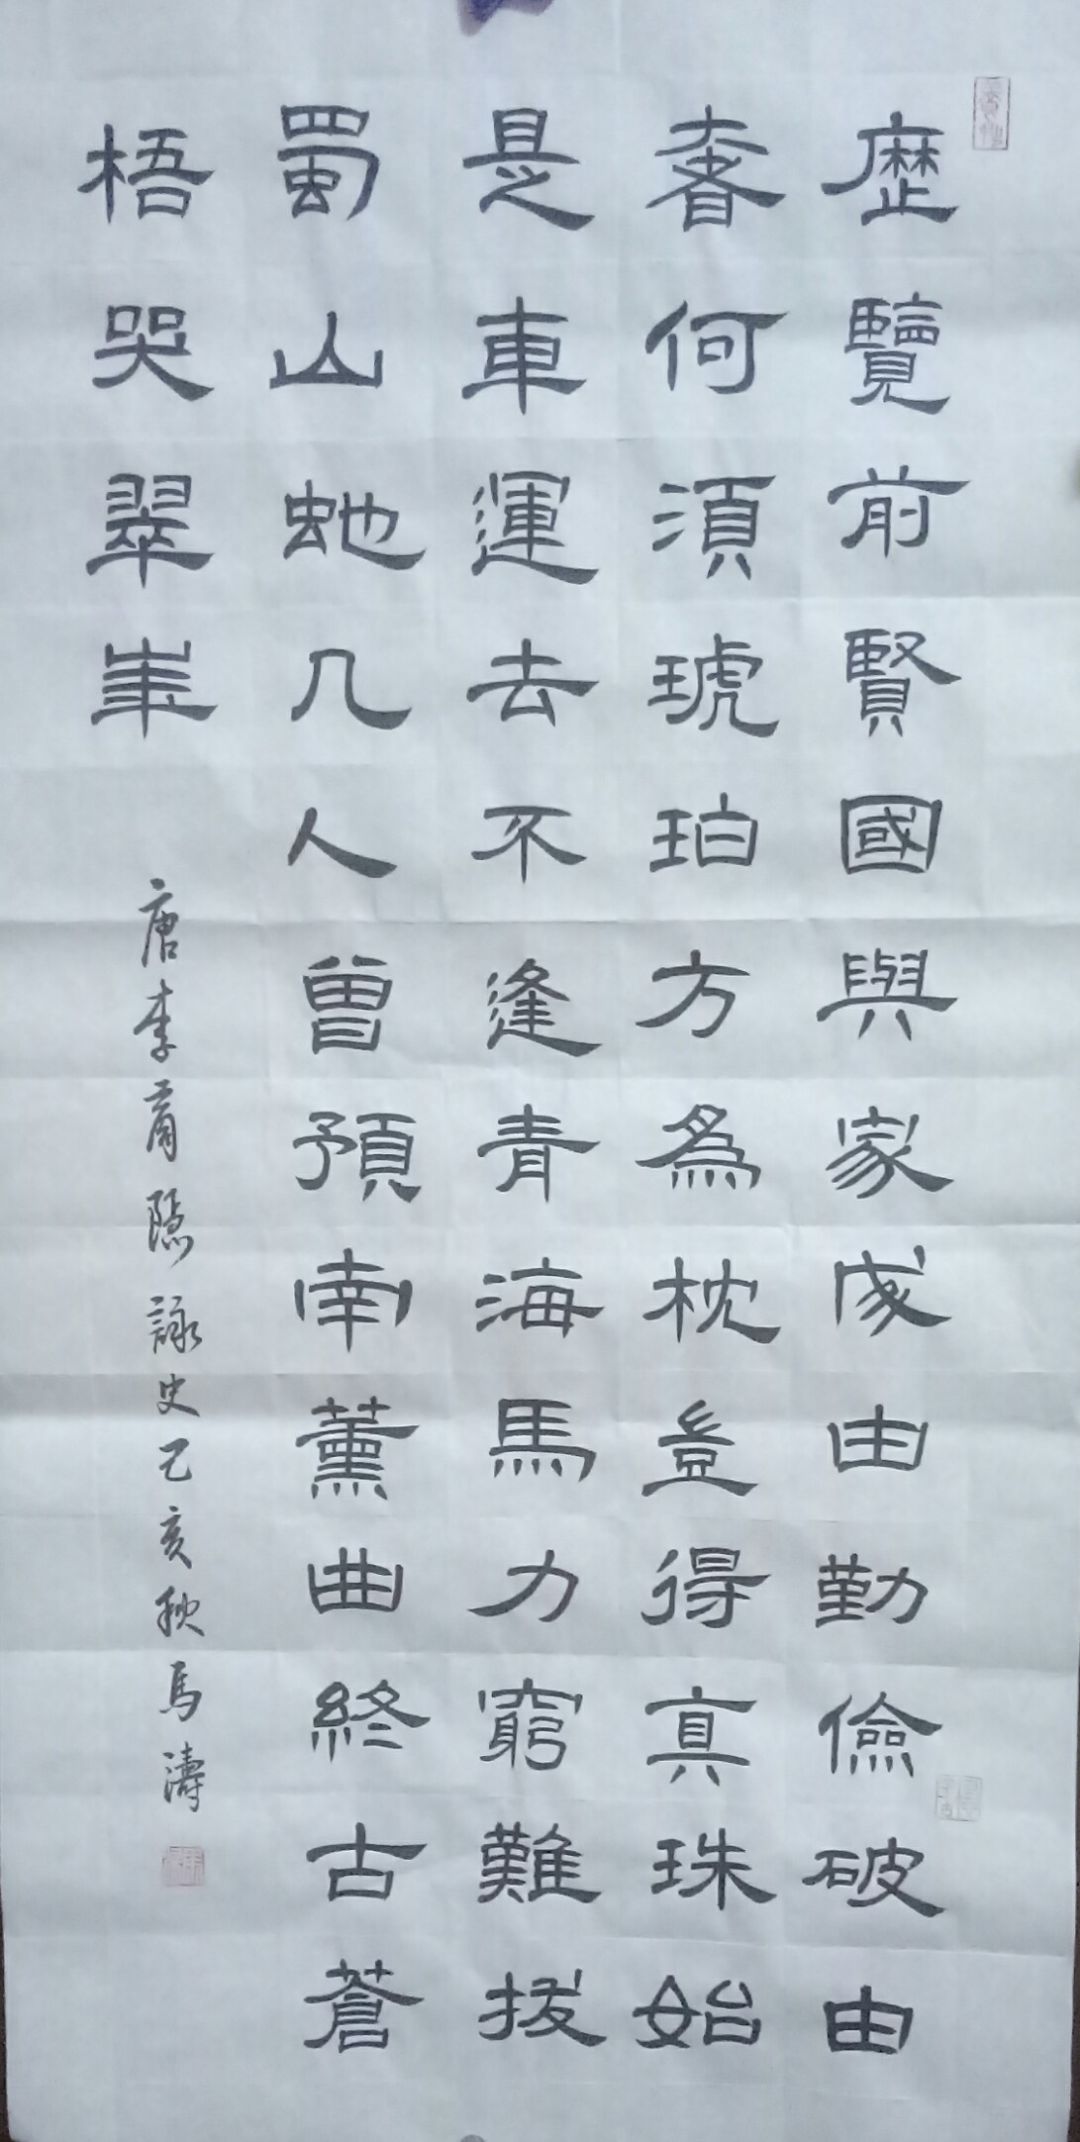 歷覽前賢國與家成由勤儉破由
奢何須琥珀方為枕豈得真珠始
是車運去不逢青海馬力窮難拔
蜀山蛇几人曾預南薰曲終古蒼
梧哭翠峯
唐李商隱詠史己亥秋馬濤